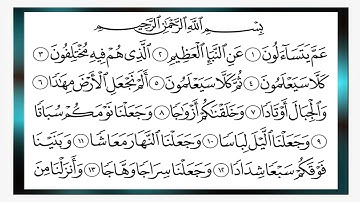 بِسْمِ اللَّهِ الرَّحْمَٰنِ الرَّحِيمِ
عَمَّ يَتَسَاءَلُونَ ١ عَنِ النَّبَإِ الْعَظِيمِ ٢ الَّذِي هُمْ فِيهِ مُخْتَلِفُونَ ٣
كَلَّا سَيَعْلَمُونَ ٤ ثُمَّ كَلَّا سَيَعْلَمُونَ ٥ أَلَمْ نَجْعَلِ الْأَرْضَ مِهَادًا ٦
وَالْجِبَالَ أَوْتَادًا ٧ وَخَلَقْنَاكُمْ أَزْوَاجًا ٨ وَجَعَلْنَا نَوْمَكُمْ سُبَاتًا
٩ وَجَعَلْنَا اللَّيْلَ لِبَاسًا ١٠ وَجَعَلْنَا النَّهَارَ مَعَاشًا ١١ وَبَنَيْنَا
فَوْقَكُمْ سَبْعًا شِدَادًا ١٢ وَجَعَلْنَا سِرَاجًا وَهَّاجًا ١٣ وَأَنْزَلْنَا مِنَ